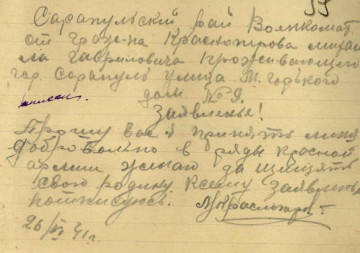 59
Сарапульский рай Военкомат
от граж-на Красноперова Михаи
ла Гавриловича проживающего
гор. Сарапуль улица М. Горького
дом № 9.
Заявленье!
Прошу вас принять меня
добровольно в ряды красной
армии желаю защищать
свою родину к сему заявленью
подписуюсь. Мкрасноперов
26/VI 41 г.